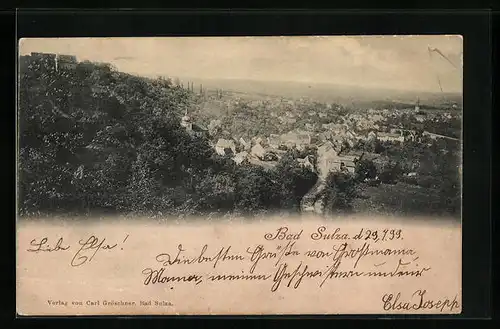 Bad Sulza. d 29,7,99.
Liebe Elsa!
Die Besten Grüße von Großmama,
Mama, meinen Geschwistern und mir
Elsa Joseph
Verlag von Carl Gröschner, Bad Sulza.